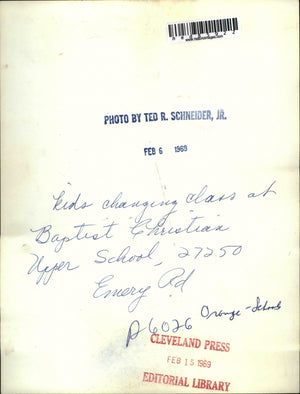 PHOTO BY TED R. SCHNEIDER, JR.
FEB 6 1969
kids changing class at
Baptist Christian
Upper School, 27250
Emery Rd
Orange - Schools
P6026
CLEVELAND PRESS
FEB 15 1969
EDITORIAL LIBRARY